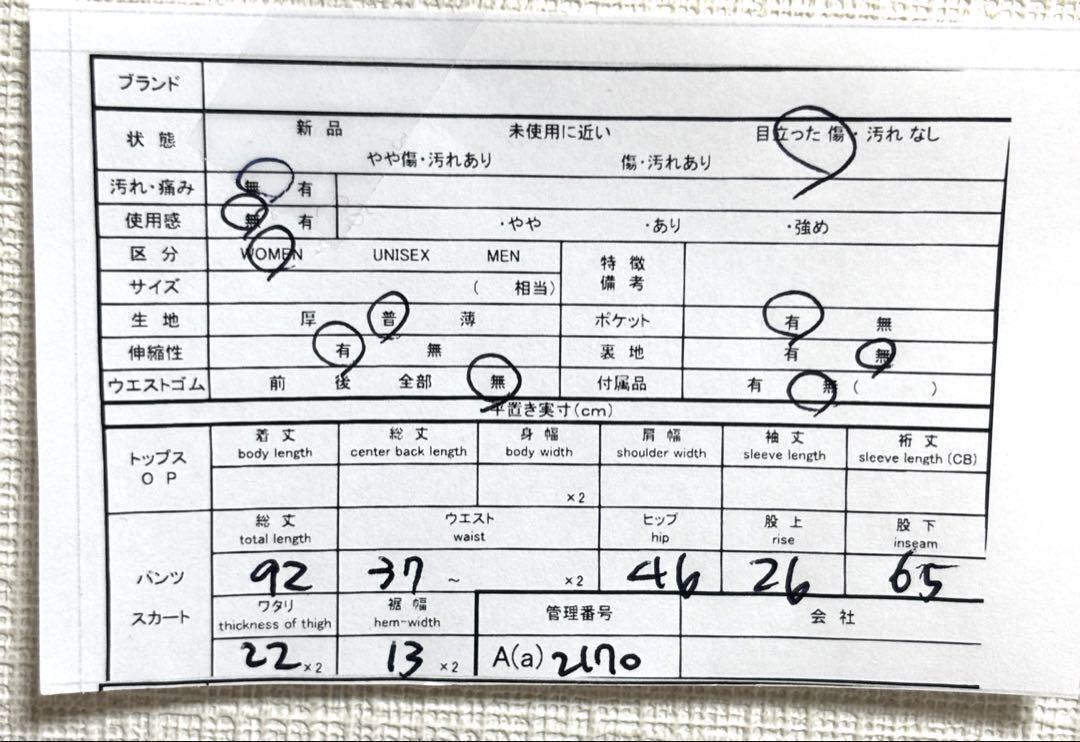 ブランド
状態 新品 未使用に近い 目立った傷・汚れなし
やや傷・汚れあり 傷・汚れあり
汚れ・痛み 無 有
使用感 無 有 ・やや ・あり ・強め
区分 WOMEN UNISEX MEN 特徴
備考
サイズ ( 相当)
生地 厚 普 薄 ポケット 有 無
伸縮性 有 無 裏地 有 無
ウエストゴム 前 後 全部 無 付属品 有 無 ( )
平置き実寸(cm)
トップス
OP
着丈 総丈 身幅 肩幅 袖丈 裄丈
body length center back length body width shoulder width sleeve length sleeve length (CB)
×2
総丈 ウエスト ヒップ 股上 股下
total length waist hip rise inseam
パンツ 92 37 ~ ×2 46 26 65
スカート ワタリ 裾幅 管理番号 会社
thickness of thigh hem-width
22 ×2 13 ×2 A(a) 2170